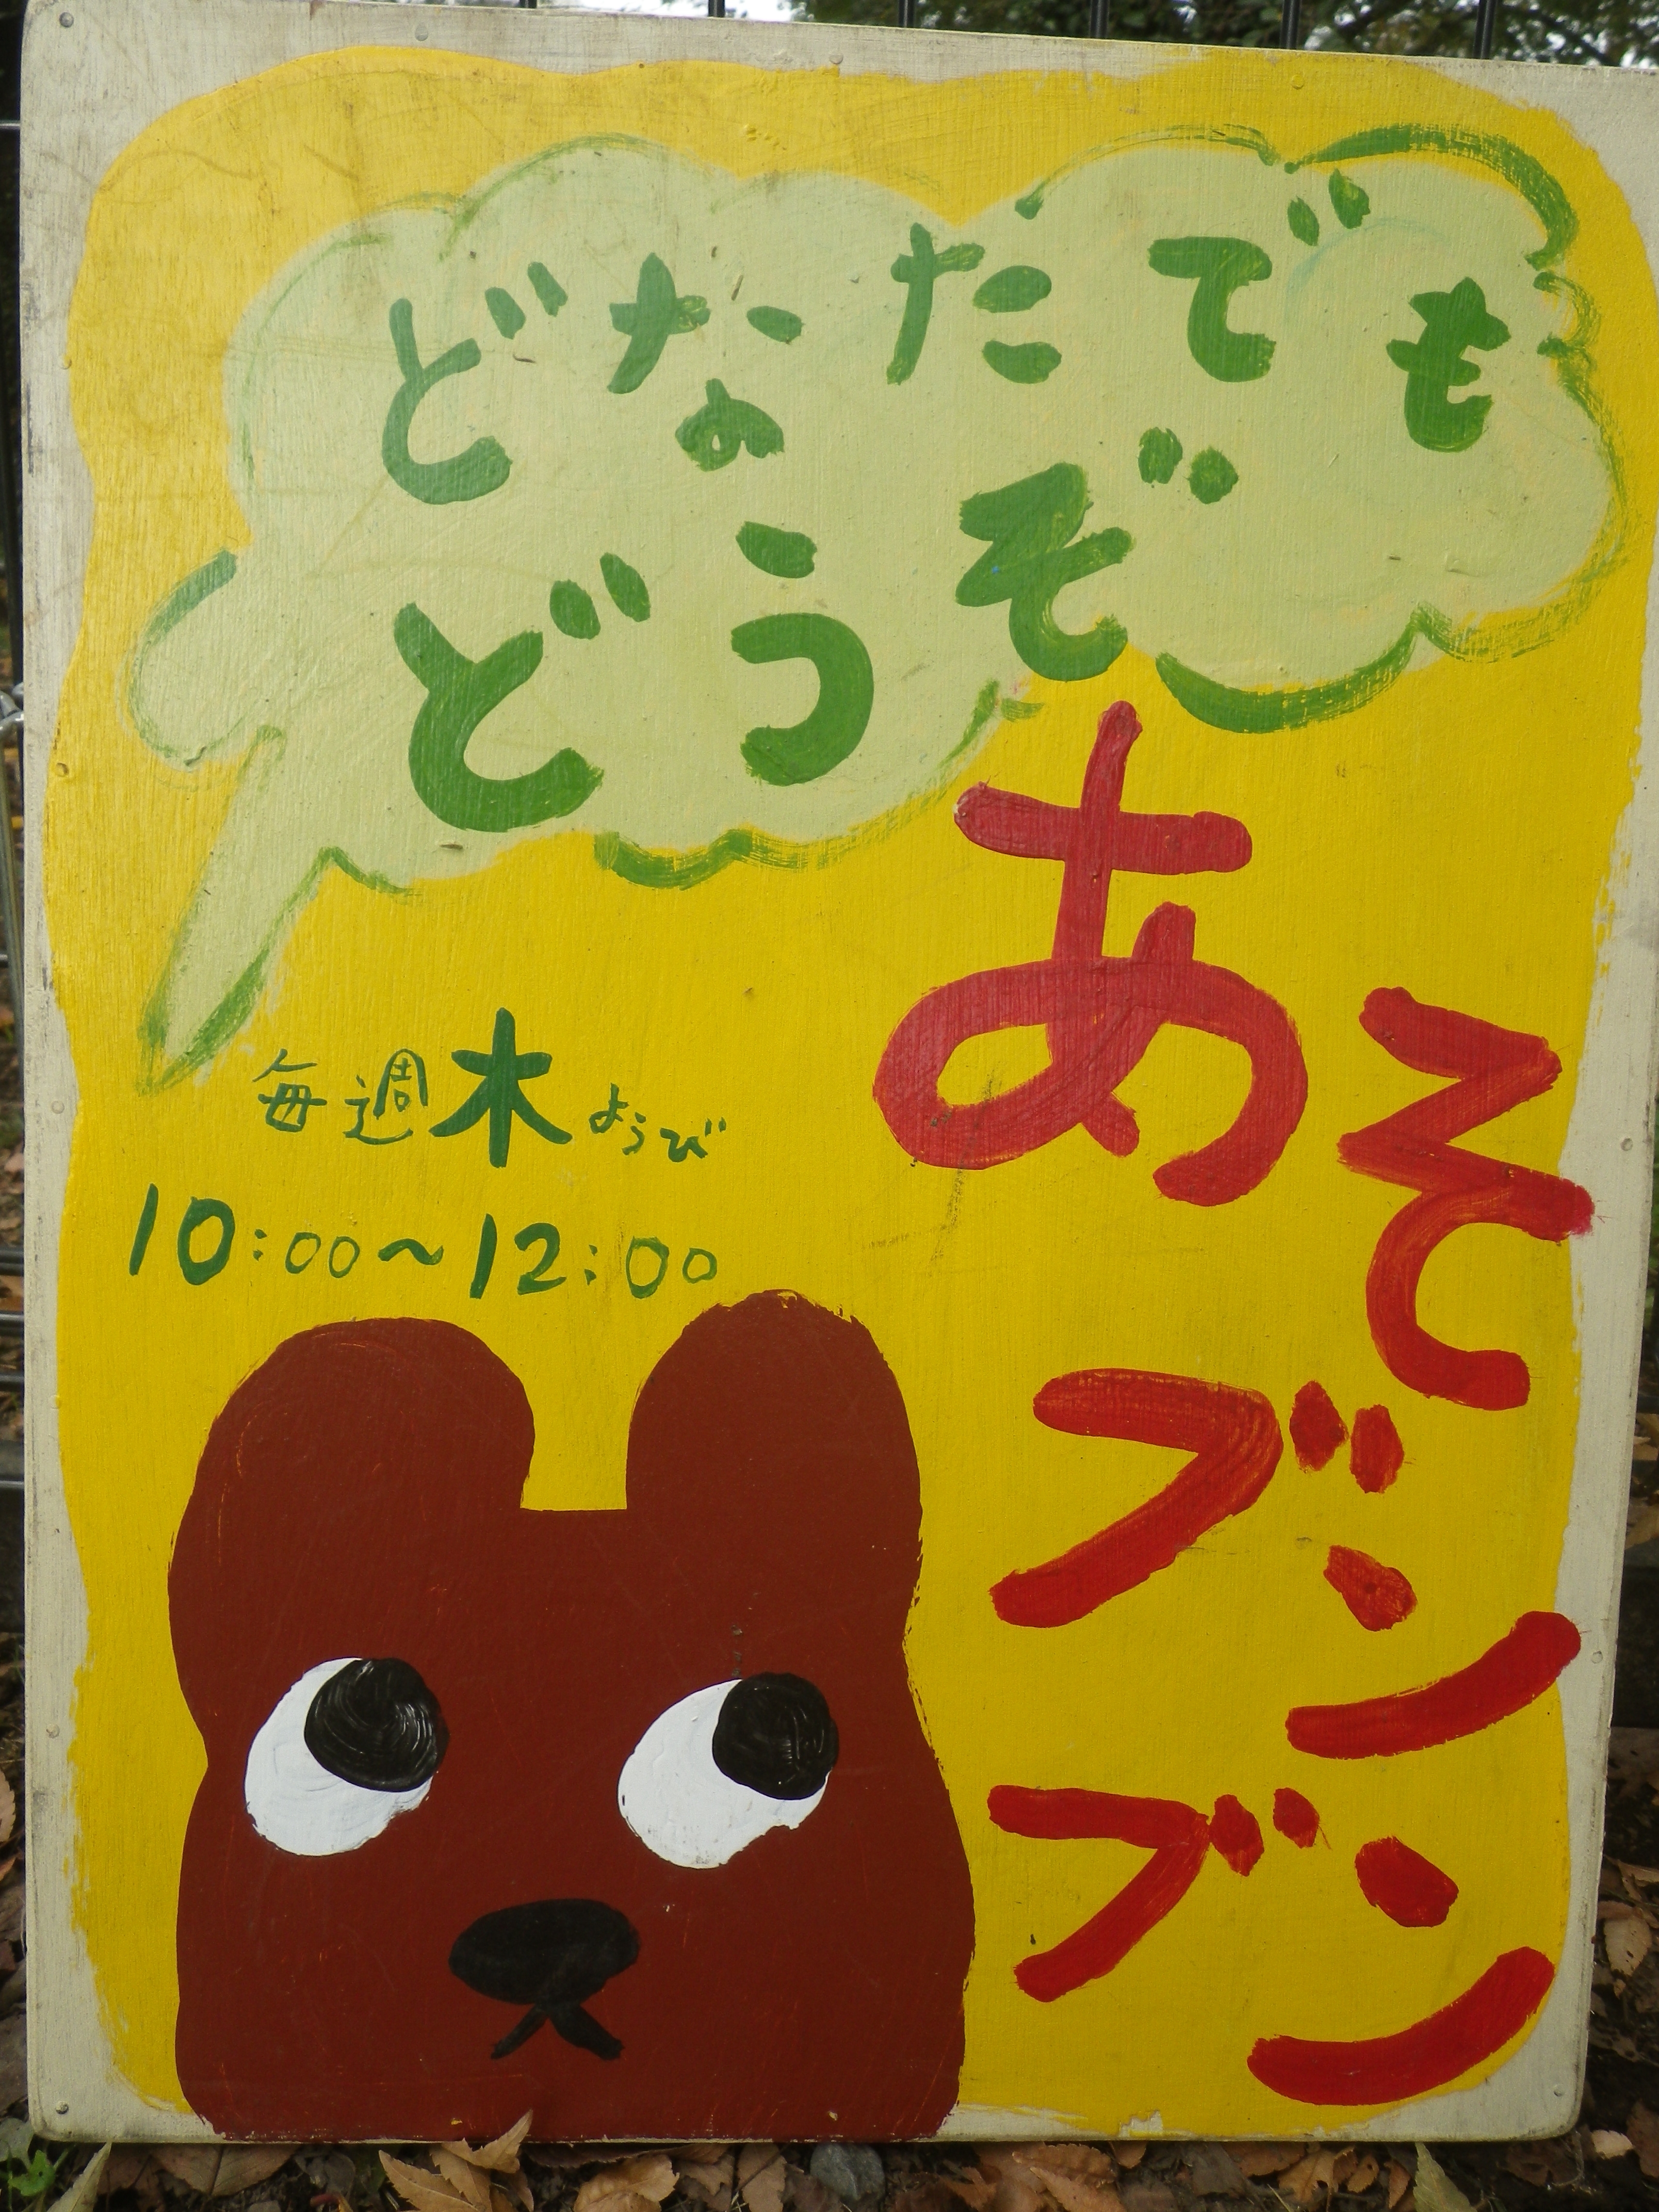 どなたでも
どうぞ
あそ
ブン
ブン
毎週木ようび
10:00〜12:00